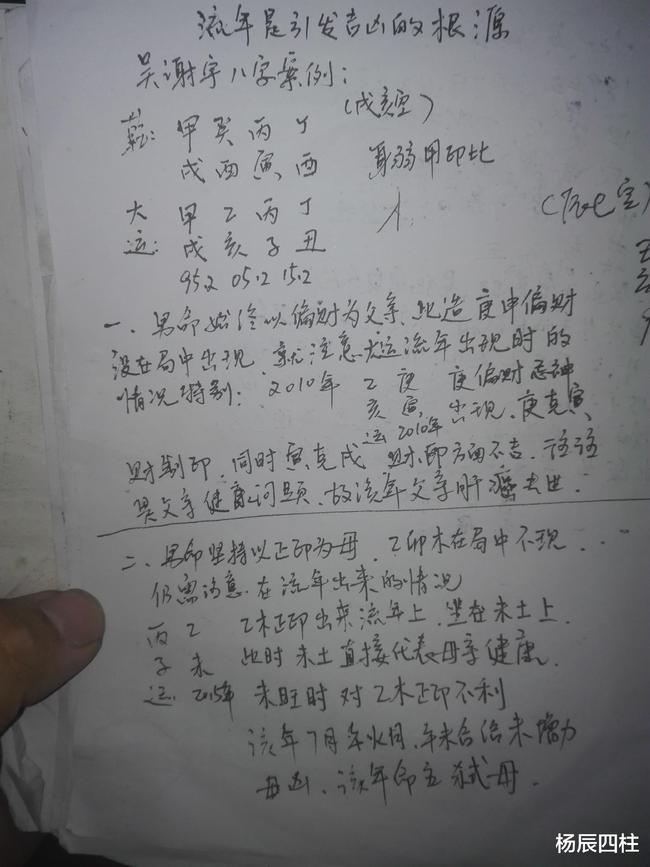 流年是引发吉凶的根源
吴谢宇八字案例:
甲 癸 丙 丁 (戌亥空)
戌 酉 寅 酉 身弱用印比
大 甲 乙 丙 丁
运: 戌 亥 子 丑
95.2 05.2 15.2
一、男命始终以偏财为父亲、此造庚申偏财
没在局中出现、就注意大运流年出现时的
情况特别: 2010年 乙 庚 庚偏财忌神
亥 寅 出现、庚克寅
运 2010年
财制印、同时寅克戌 财、印方面不吉、往往
是父亲健康问题、故该年父亲肝癌去世.
二、男命坚持以正印为母、乙卯木在局中不现、
仍需注意、在流年出来的情况
丙 乙 乙木正印出来流年上、坐在未土上.
子 未 此时未土直接代表母亲健康.
运 2015年 未旺时对乙木正印不利
该年7月午火月、午未合给未增力
母凶、该年命主弑母.
杨辰四柱